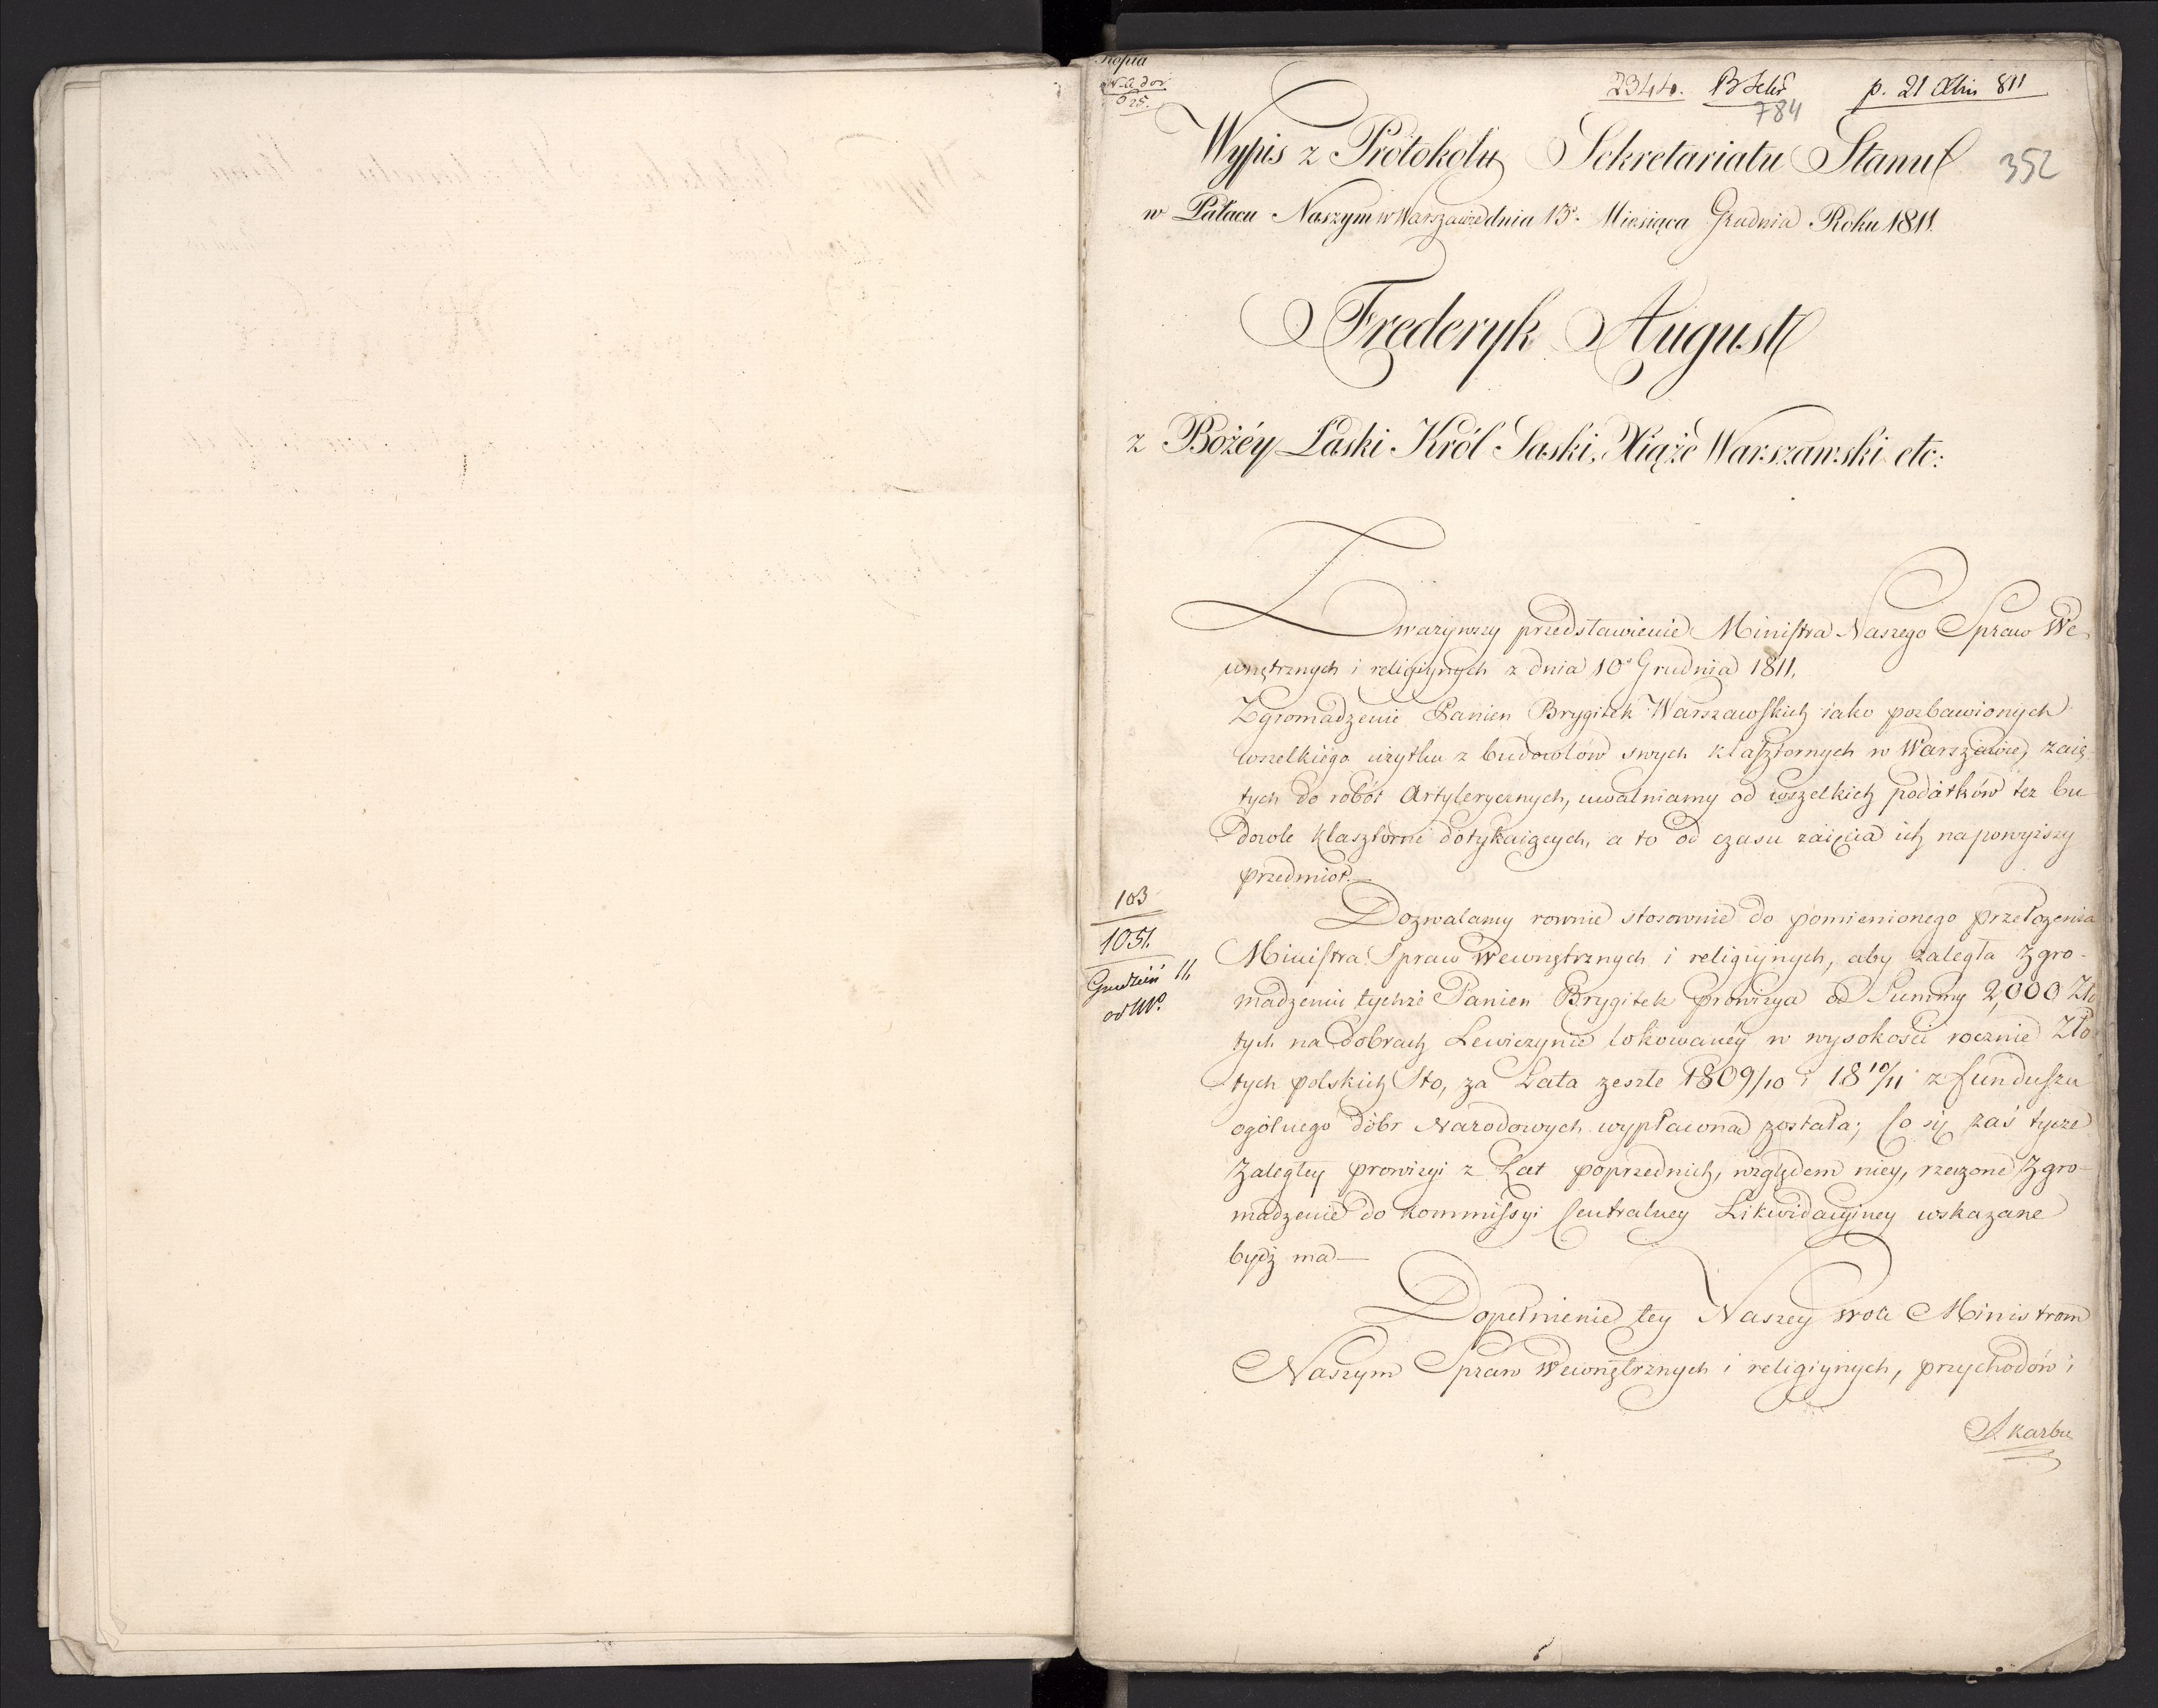 Kopia
2344. p. 21 Xbris 811
784
Wypis z Protokołu Sekretariatu Stanu
352
w Pałacu Naszym w Warszawie dnia 13. Miesiąca Grudnia Roku 1811.
Frederyk August
z Bożéy Łaski Król Saski, Xiąże Warszawski etc:
Zważywszy przedstawienie Ministra Naszego Spraw We-
wnętrznych i religiynych z dnia 10º Grudnia 1811.
Zgromadzenie Panien Brygitek Warszawskich iako pozbawionych
wszelkiégo użytku z budowlów swych klasztornych w Warszawie, zaię-
tych do robót Artylerycznych, uwalniamy od wszelkich podatków też bu
dowle klasztorne dotykaiących, a to od czasu zaięcia ich na powyższy
przedmiot.—
Dozwalamy rownie stosownie do pomienionego przełożenia
Ministra Spraw Wewnętrznych i religiynych, aby zaległa Zgro-
madzeniu tychże Panien Brygitek prowizya od Summy 2,000 Zło
tych na dobrach Lewiczynie lokowanéy w wysokości rocznie Zło
tych polskich Sto, za Lata zeszłe 1809/10 i 18 10/11 z funduszu
ogólnego dóbr Narodowych wypłacona została; Co się zaś tycze
Zaległey prowizyi z Lat poprzednich, względem niey, rzeczone Zgro-
madzenie do Kommissyi Centralney Likwidacyiney wskazane
bydź ma—
103
1051.
Grudzień 11.
Dopełnienie tey Naszey woli Ministrom
Naszym Spraw Wewnętrznych i religiynych, przychodów i
Skarbu